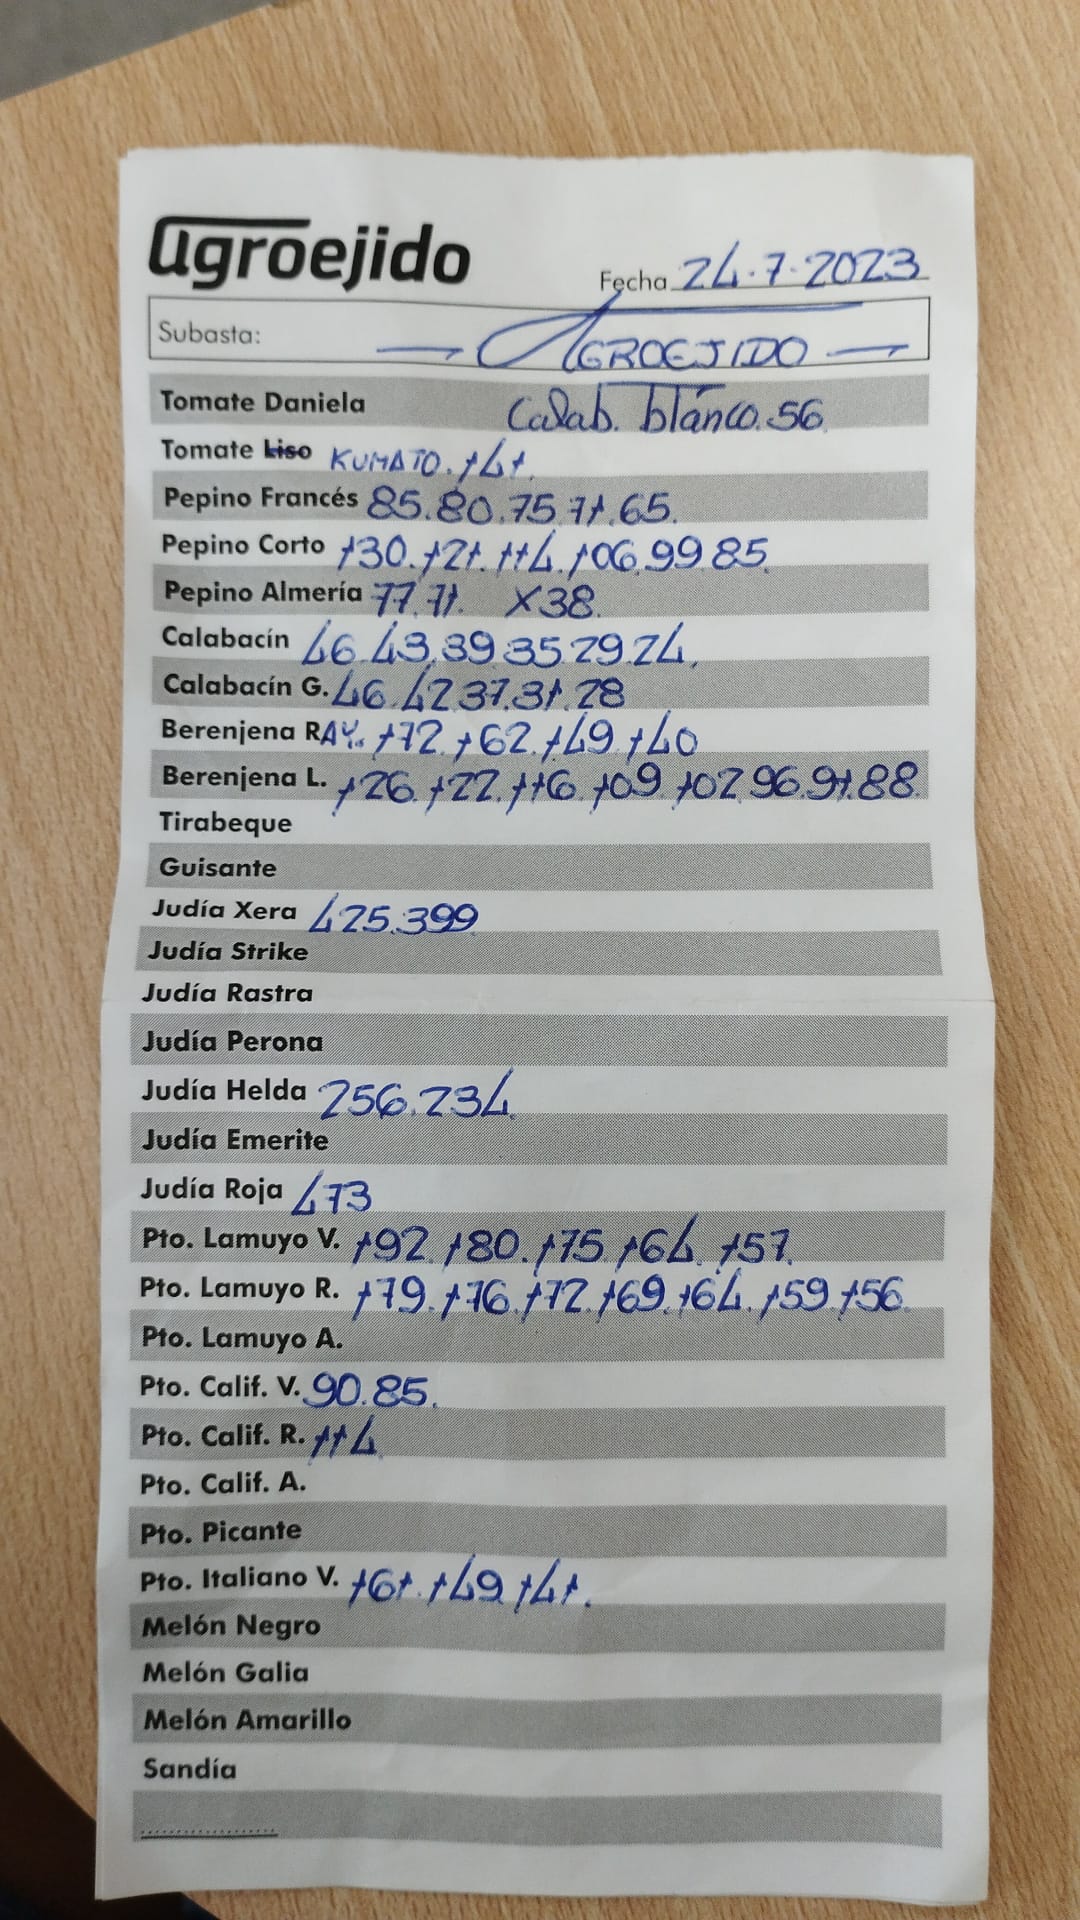 agroejido
Fecha 24.7.2023
Subasta: — AGROEJIDO —
Tomate Daniela Calab. blanco. 56.
Tomate Liso KUMATO. 141.
Pepino Francés 85.80.75.71.65.
Pepino Corto 130.121.114.106.99.85.
Pepino Almería 77.71. X38.
Calabacín 46.43.39.35.29.24.
Calabacín G. 46.42.37.31.28
Berenjena RAY. 172.162.149.140
Berenjena L. 126.122.116.109.102.96.91.88.
Tirabeque
Guisante
Judía Xera 425.399
Judía Strike
Judía Rastra
Judía Perona
Judía Helda 256.234.
Judía Emerite
Judía Roja 473
Pto. Lamuyo V. 192.180.175.164.157.
Pto. Lamuyo R. 179.176.172.169.164.159.156.
Pto. Lamuyo A.
Pto. Calif. V. 90.85.
Pto. Calif. R. 114.
Pto. Calif. A.
Pto. Picante
Pto. Italiano V. 161.149.141.
Melón Negro
Melón Galia
Melón Amarillo
Sandía